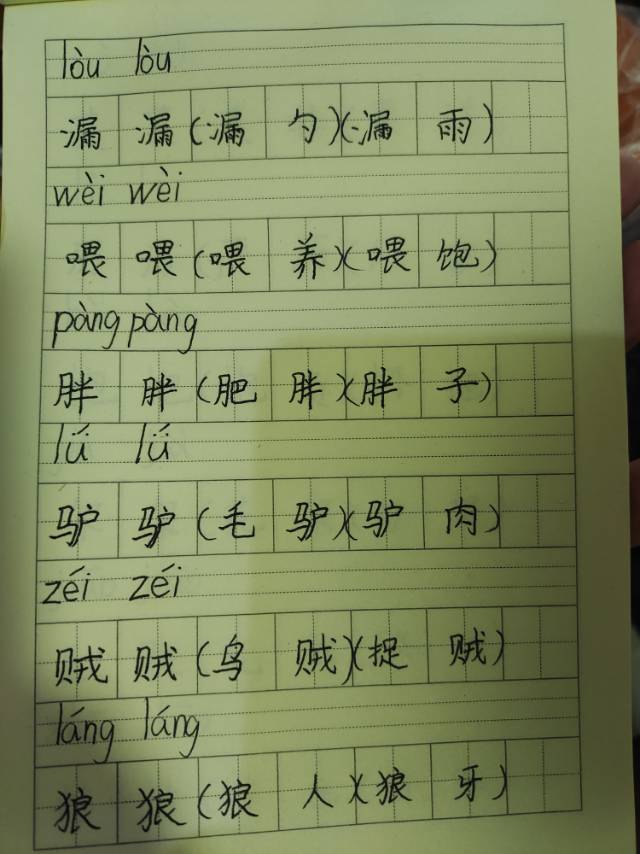 lòu lòu
漏 漏(漏 勺)(漏 雨)
wèi wèi
喂 喂(喂 养)(喂 饱)
pàng pàng
胖 胖(肥 胖)(胖 子)
lǘ lǘ
驴 驴(毛 驴)(驴 肉)
zéi zéi
贼 贼(乌 贼)(捉 贼)
láng láng
狼 狼(狼 人)(狼 牙)